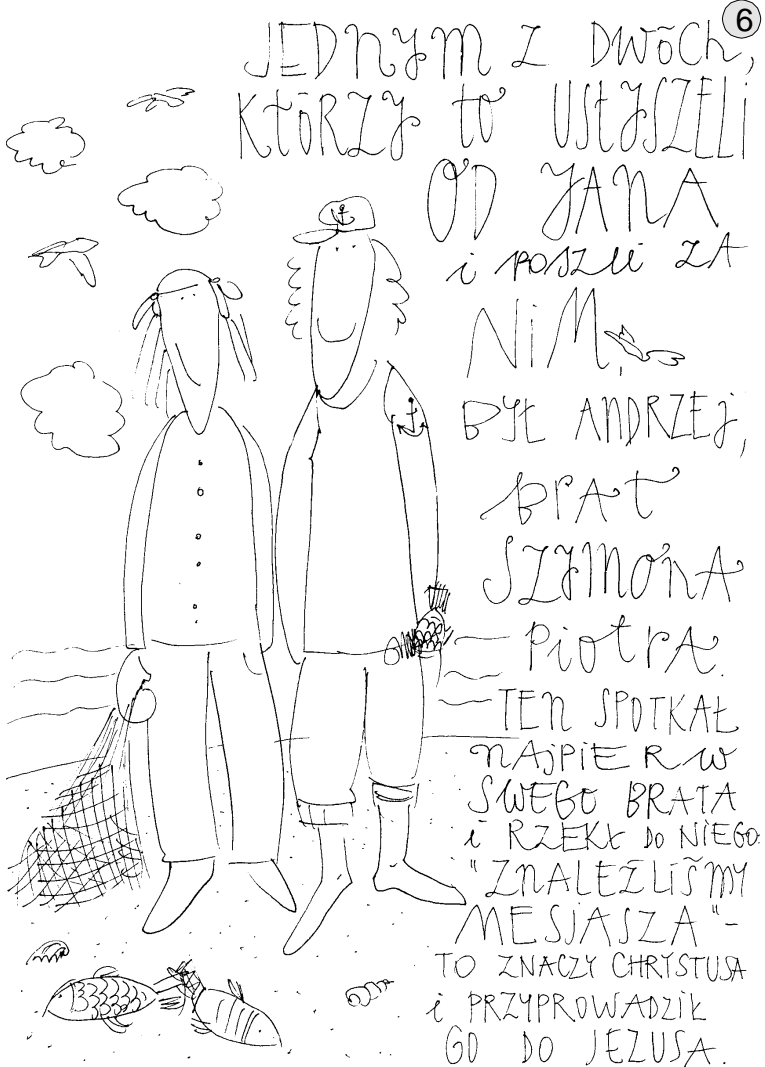 6
JEDNYM Z DWÓCH,
KTÓRZY TO USŁYSZELI
OD JANA
i poszli ZA
NiM,
BYŁ ANDRZEJ,
BRAT
SZYMONA
PiotrA.
TEN SPOTKAŁ
NAJPiERW
SWEGO BRATA
i RZEKŁ DO NIEGO:
"ZNALEŹLIŚMY
MESJASZA" -
TO ZNACZY CHRYSTUSA
i PRZYPROWADZIŁ
GO DO JEZUSA.